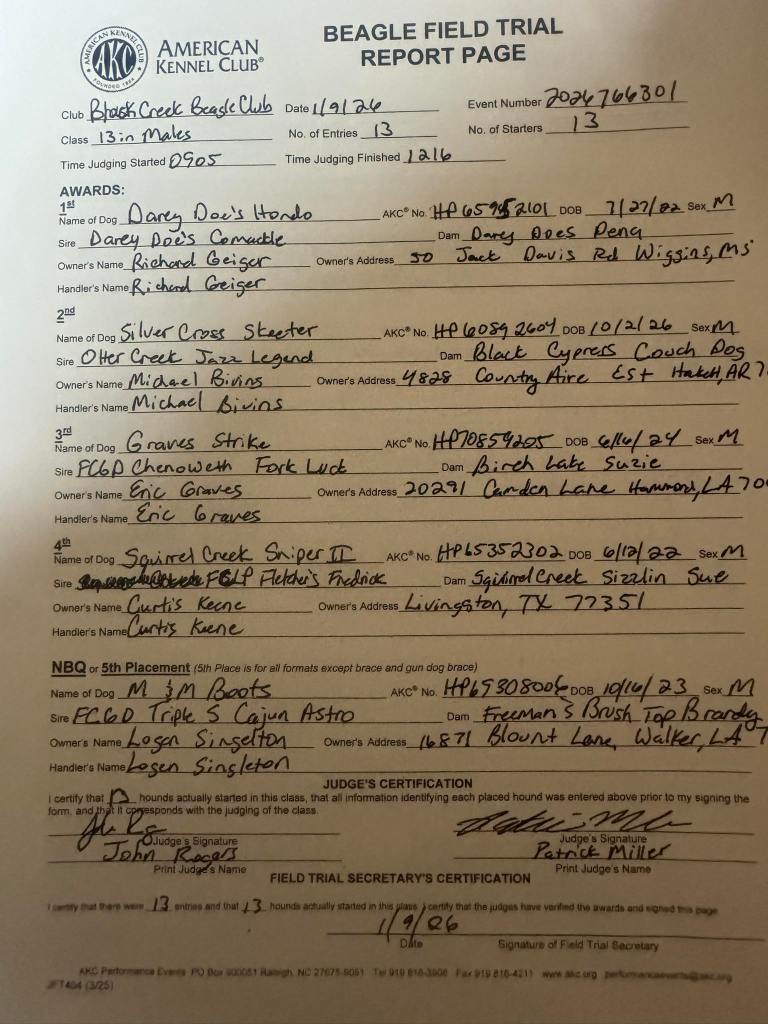 BEAGLE FIELD TRIAL
REPORT PAGE
AMERICAN KENNEL CLUB
AKC
FOUNDED 1884
AMERICAN
KENNEL CLUB®
Club Creek Beagle Club Date 1/9/26 Event Number 2026766301
Class 13 in Males No. of Entries 13 No. of Starters 13
Time Judging Started 0905 Time Judging Finished 1216
AWARDS:
1st
Name of Dog Darey Doe's Hondo AKC® No. HP65952101 DOB 7/27/22 Sex M
Sire Darey Doe's Dam Darey Does Pena
Owner's Name Richard Geiger Owner's Address 50 Jack Davis Rd Wiggins, MS
Handler's Name Richard Geiger
2nd
Name of Dog Silver Cross Skeeter AKC® No. HP60892604 DOB 10/2/26 Sex M
Sire Otter Creek Jazz Legend Dam Black Cypress Couch Dog
Owner's Name Michael Bivins Owner's Address 4828 Country Aire Est AR 7
Handler's Name Michael Bivins
3rd
Name of Dog Graves Strike AKC® No. HP70859205 DOB 6/16/24 Sex M
Sire FCGD Chenoweth Fork Luck Dam Birch Lake Suzie
Owner's Name Eric Graves Owner's Address 20291 Camden Lane Hammond, LA 70
Handler's Name Eric Graves
4th
Name of Dog Squirrel Creek Sniper II AKC® No. HP65352302 DOB 6/12/22 Sex M
Sire Fletcher's Fredrick Dam Squirrel Creek Sizzlin Sue
Owner's Name Curtis Keene Owner's Address Livingston, TX 77351
Handler's Name Curtis Keene
NBQ or 5th Placement (5th Place is for all formats except brace and gun dog brace)
Name of Dog M & M Boots AKC® No. HP69308006 DOB 10/16/23 Sex M
Sire FCGD Triple S Cajun Astro Dam Freeman's Brush Top Brandy
Owner's Name Logan Singelton Owner's Address 16871 Blount Lane, Walker, LA 7
Handler's Name Logan Singleton
JUDGE'S CERTIFICATION
I certify that 13 hounds actually started in this class, that all information identifying each placed hound was entered above prior to my signing the
form, and that it corresponds with the judging of the class.
Judge's Signature Judge's Signature
John Rogers Patrick Miller
Print Judge's Name Print Judge's Name
FIELD TRIAL SECRETARY'S CERTIFICATION
I certify that there were 13 entries and that 13 hounds actually started in this class. I certify that the judges have verified the awards and signed this page
1/9/26
Date Signature of Field Trial Secretary
AKC Performance Events PO Box 900051 Raleigh, NC 27675-9051 Tel 919 816-3908 Fax 919 816-4211 www.akc.org performanceevents@akc.org
JFT404 (3/25)